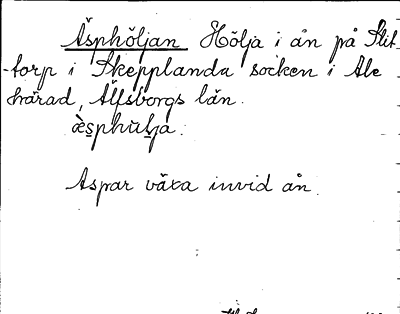 Äsphöljan Hölja i ån på Slit-
-torp i Skepplanda socken i Ale
härad, Älfsborgs län.
æsphulja.
Aspar växa invid ån.